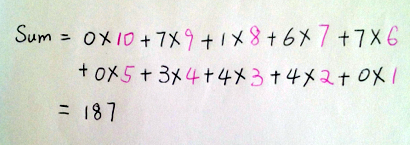 Sum = 0×10+7×9+1×8+6×7+7×6
+0×5+3×4+4×3+4×2+0×1
= 187